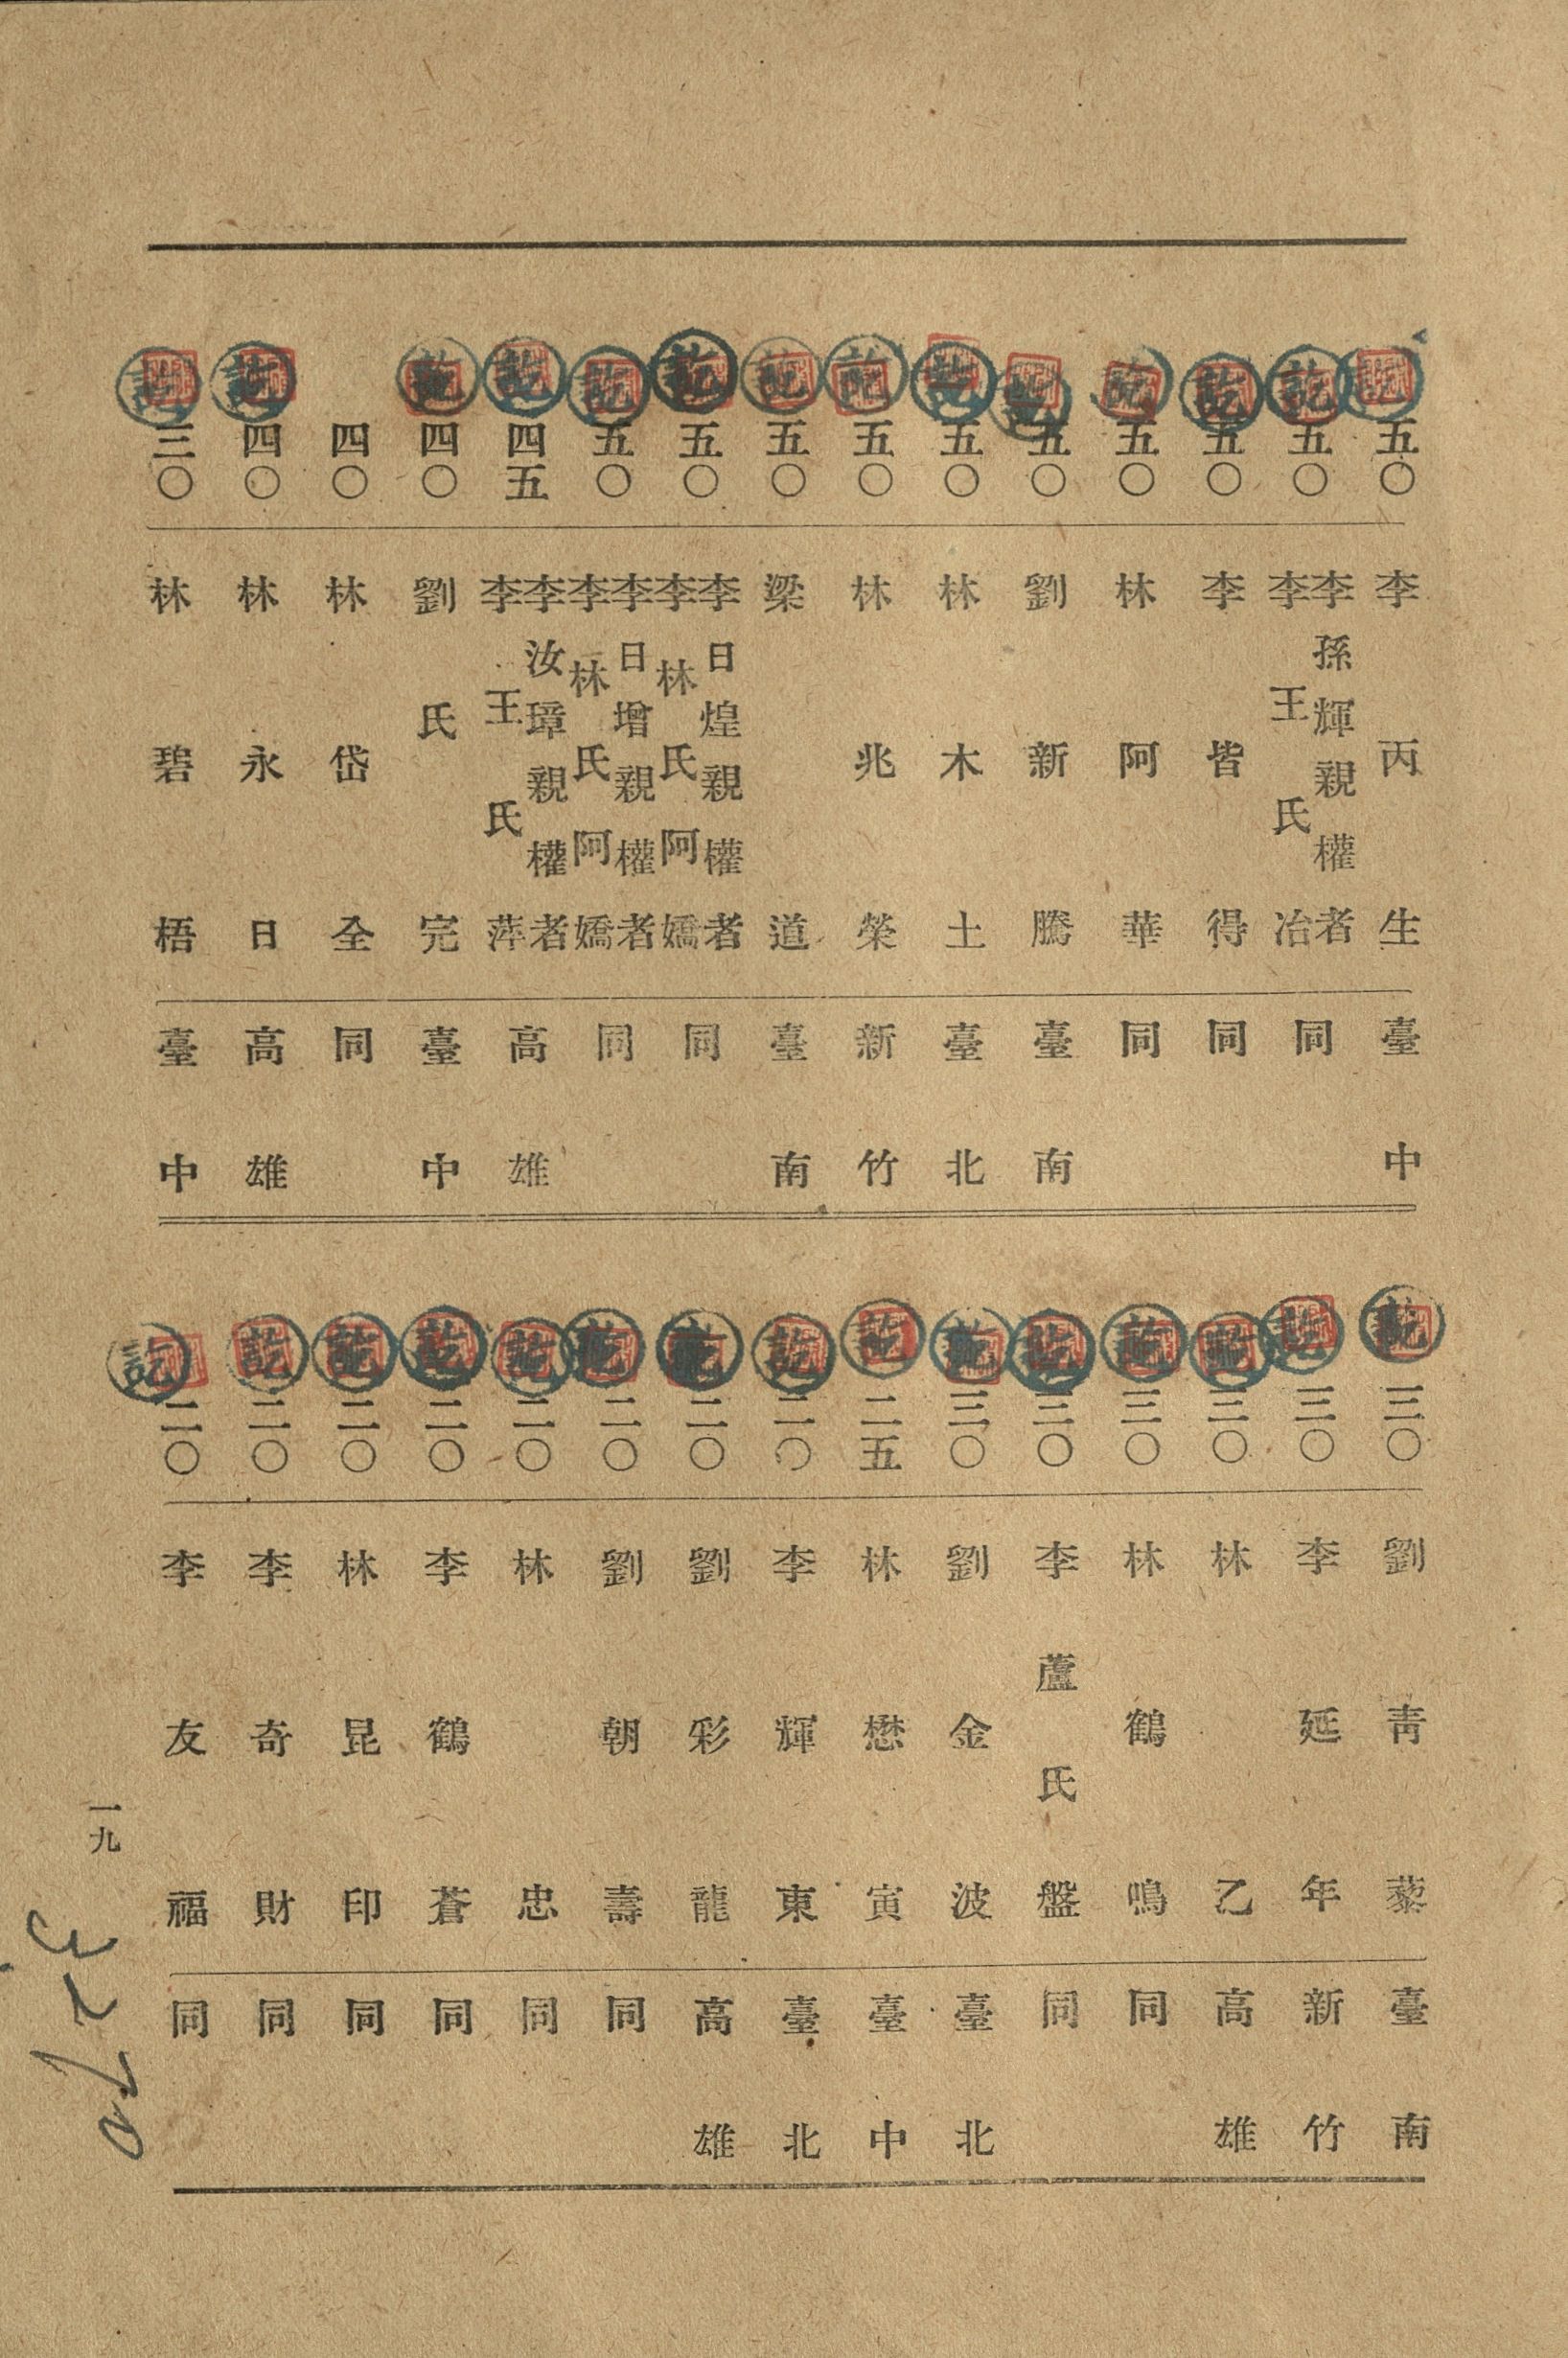 五〇 李丙生 臺中
五〇 李孫輝親權者 李王氏冶 同
五〇 李皆得 同
五〇 林阿華 同
五〇 劉新騰 臺南
五〇 林木土 臺北
五〇 林兆榮 新竹
五〇 梁道 臺南
五〇 李日煌親權者 李林氏阿嬌 同
五〇 李日增親權者 李林氏阿嬌 同
四五 李汝璋親權者 李王氏萍 高雄
四〇 劉氏完 臺中
四〇 林岱全 同
四〇 林永日 高雄
三〇 林碧梧 臺中
三〇 劉青藜 臺南
三〇 李延年 新竹
三〇 林乙 高雄
三〇 林鶴鳴 同
三〇 李蘆氏盤 同
三〇 劉金波 臺北
二五 林懋寅 臺中
二〇 李輝東 臺北
二〇 劉彩龍 高雄
二〇 劉朝壽 同
二〇 林忠 同
二〇 李鶴蒼 同
二〇 林昆印 同
二〇 李奇財 同
二〇 李友福 同
一九